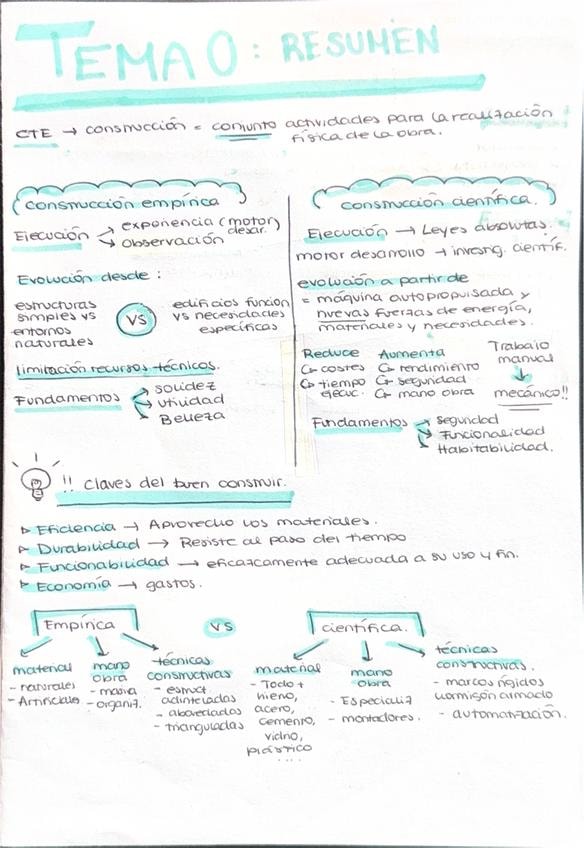 TEMA 0: RESUMEN
CTE → construcción = conjunto actividades para la realización
física de la obra.
construcción empírica
Ejecución → experiencia (motor desar.)
→ observación
Evolución desde:
estructuras simples vs entornos naturales
VS
edificios funcion vs necesidades específicas
limitación recursos técnicos.
Fundamentos → solidez
→ utilidad
→ Belleza
construcción científica.
Ejecución → Leyes absolutas.
motor desarrollo → investig. científ.
evolución a partir de
= máquina autopropulsada y
nuevas fuerzas de energía,
materiales y necesidades.
Reduce
↳ costes
↳ tiempo ejecuc.
Aumenta
↳ rendimiento
↳ seguridad
↳ mano obra
Trabajo
manual
↓
mecánico!!
Fundamentos → seguridad
→ Funcionalidad
→ Habitabilidad.
!! claves del buen construir.
▷ Eficiencia → Aprovecho los materiales.
▷ Durabilidad → Resiste al paso del tiempo
▷ Funcionabilidad → eficazmente adecuada a su uso y fin.
▷ Economía → gastos.
Empírica
vs
científica.
material
- naturales
- Artificiales
mano
obra
- masiva
- organiz.
técnicas
constructivas
- estruct.
adinteladas
- abovedadas
- trianguladas
material
- Todo +
hierro,
acero,
cemento,
vidrio,
plástico
...
mano
obra
- Especializ
- montadores.
técnicas
constructivas.
- marcos rígidos
hormigón armado
- automatización.